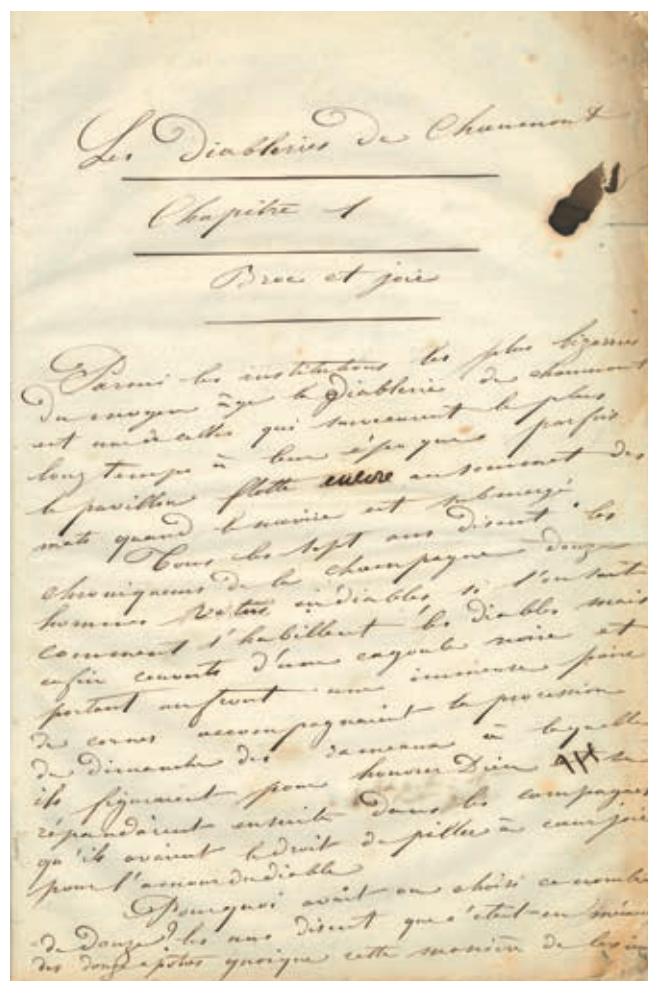 Les Diableries de Chaumont
Chapitre 1
Broc et joie
Parmi les institutions les plus bizarres
du moyen âge la Diablerie de chaumont
est une de celles qui survécurent le plus
longtemps à leur époque parfois
le pavillon flotte encore au sommet des
mats quand le navire est submergé
Tous les sept ans disent les
chroniqueurs de la champagne douze
hommes vetus en diables si l'on sait
comment s'habillent les diables mais
enfin couverts d'une cagoule noire et
portant au front une immense paire
de cornes accompagnaient la procession
du dimanche des rameaux à laquelle
ils figuraient pour honorer Dieu et se
répandaient ensuite dans les campagnes
qu'ils avaient le droit de piller à cœur joie
pour l'amour du diable
Pourquoi avait on choisi ce nombre
de Douze? les uns disent que c'était en
des douze apotres quoique cette manière de